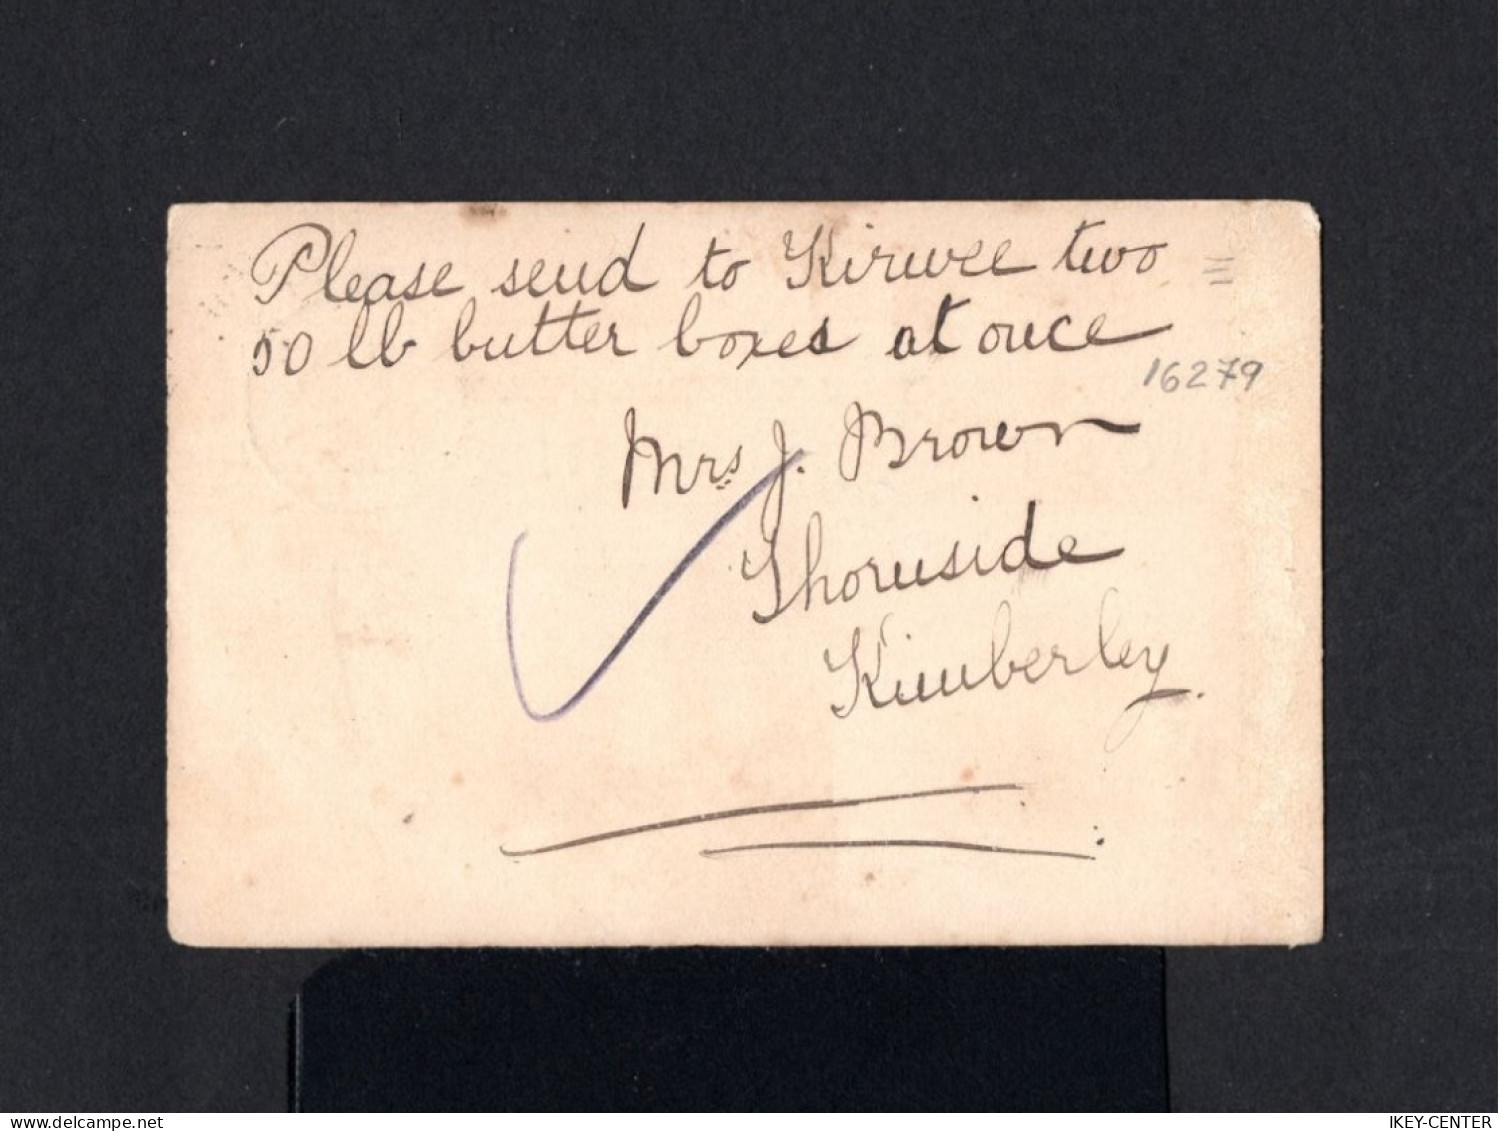 Please send to Kirwee two
50 lb butter boxes at once
16279
Mrs J. Brown
Thornside
Kimberley.
www.delcampe.net
IKEY-CENTER